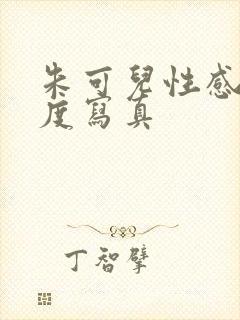 朱可兒性感
度寫真
丁智擘